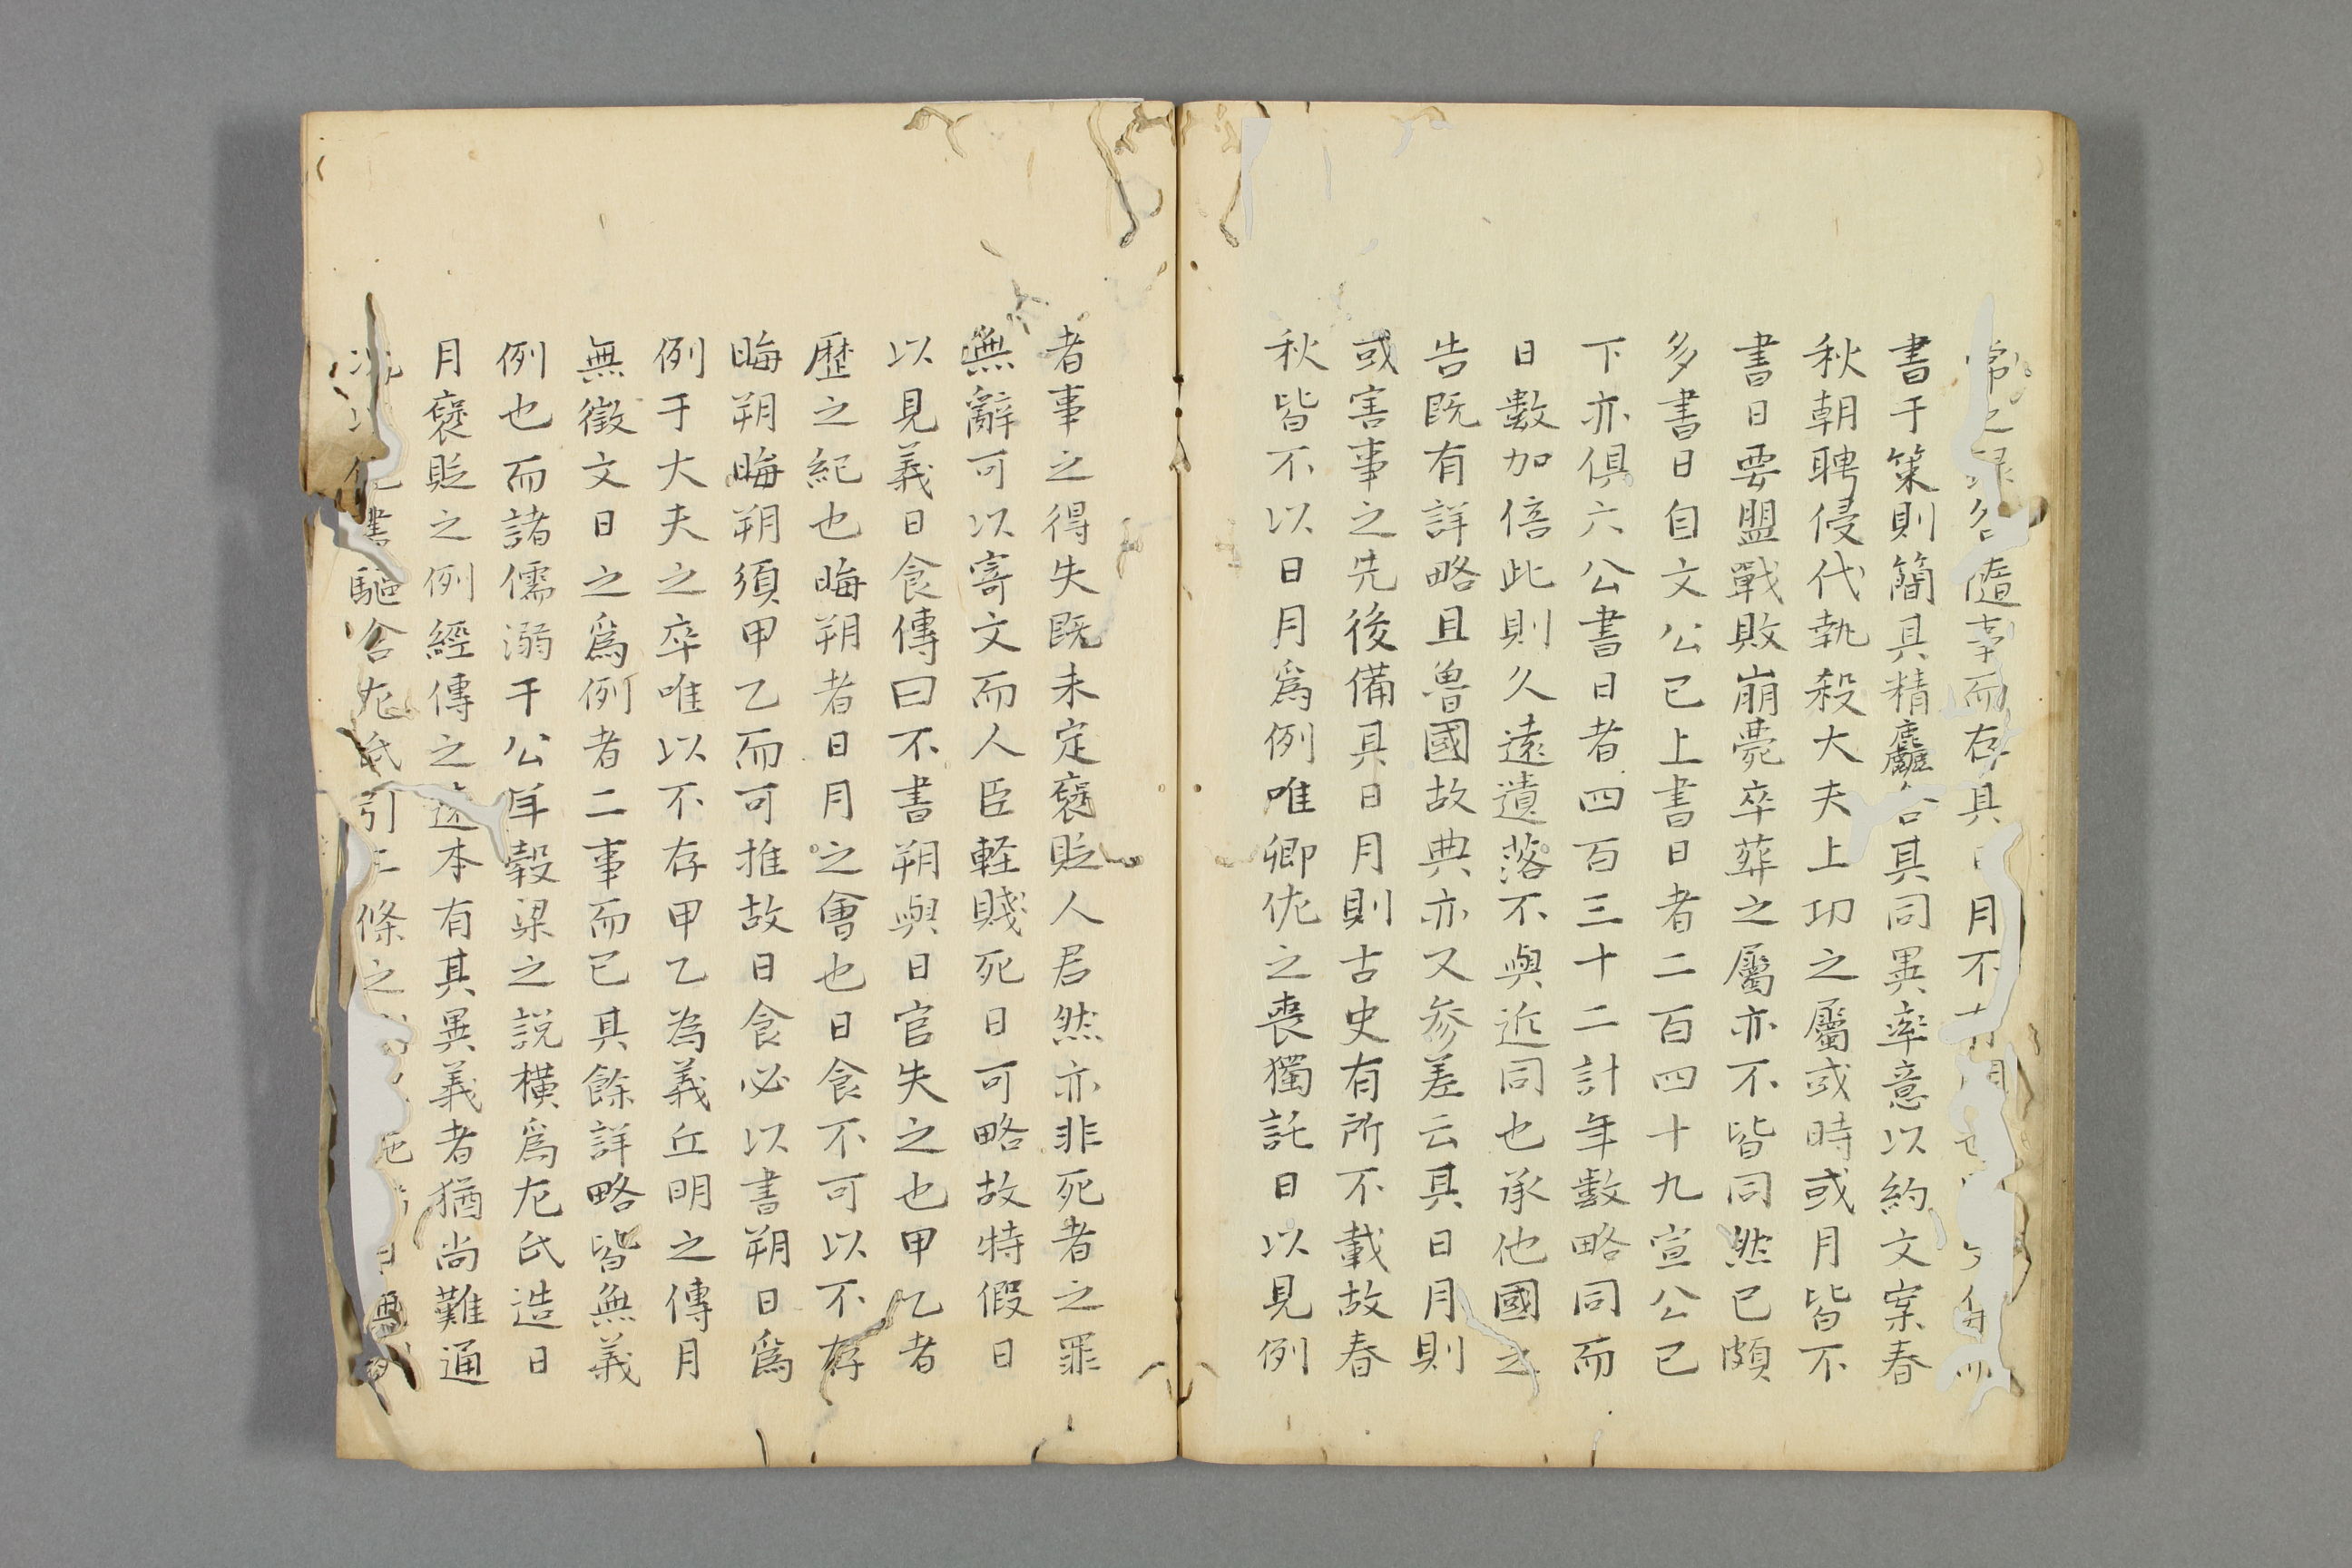 常之隨事而存其月不
書于策則簡其精麤合其同異率意以約文案春
秋朝聘侵伐執殺大夫土功之屬或時或月皆不
書日要盟戰敗崩薨卒葬之屬亦不皆同然已頗
多書日自文公已上書日者二百四十九宣公已
下亦俱六公書日者四百三十二計年數略同而
日數加倍此則久遠遺落不與近同也承他國之
告既有詳略且魯國故典亦又参差云其日月則
或害事之先後備其日月則古史有所不載故春
秋皆不以日月爲例唯卿佐之喪獨託日以見例
者事之得失既未定褒貶人君然亦非死者之罪
無辭可以寄文而人臣軽賤死日可略故特假日
以見義日食傳曰不書朔與日官失之也甲乙者
歴之紀也晦朔者日月之會也日食不可以不存
晦朔晦朔須甲乙而可推故日食必以書朔日爲
例于大夫之卒唯以不存甲乙為義丘明之傳月
無徵文日之爲例者二事而已其餘詳略皆無義
例也而諸儒溺于公羊穀梁之説横爲左氏造日
月褒貶之例經傳之遠本有其異義者猶尚難通
書驅合左氏引條之